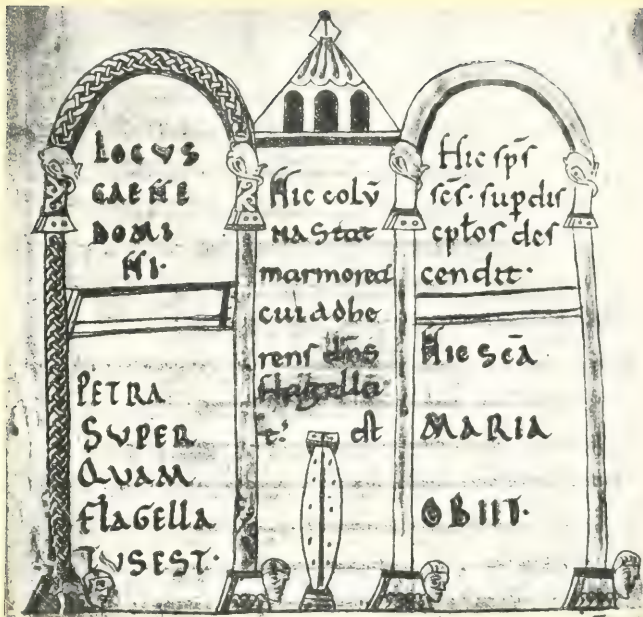 LOCVS
CAENE
DOMI
NI·
PETRA
SVPER
QVAM
FLAGELLA
TVSEST·
Hic colū
na Stat
marmorea
cui adhe
rens dn̄s
flagella
t: est
Hic sp̄s
sc̄s· suꝑ dis
cpt̄os des
cendit·
Hic sc̄a
MARIA
OBIIT·